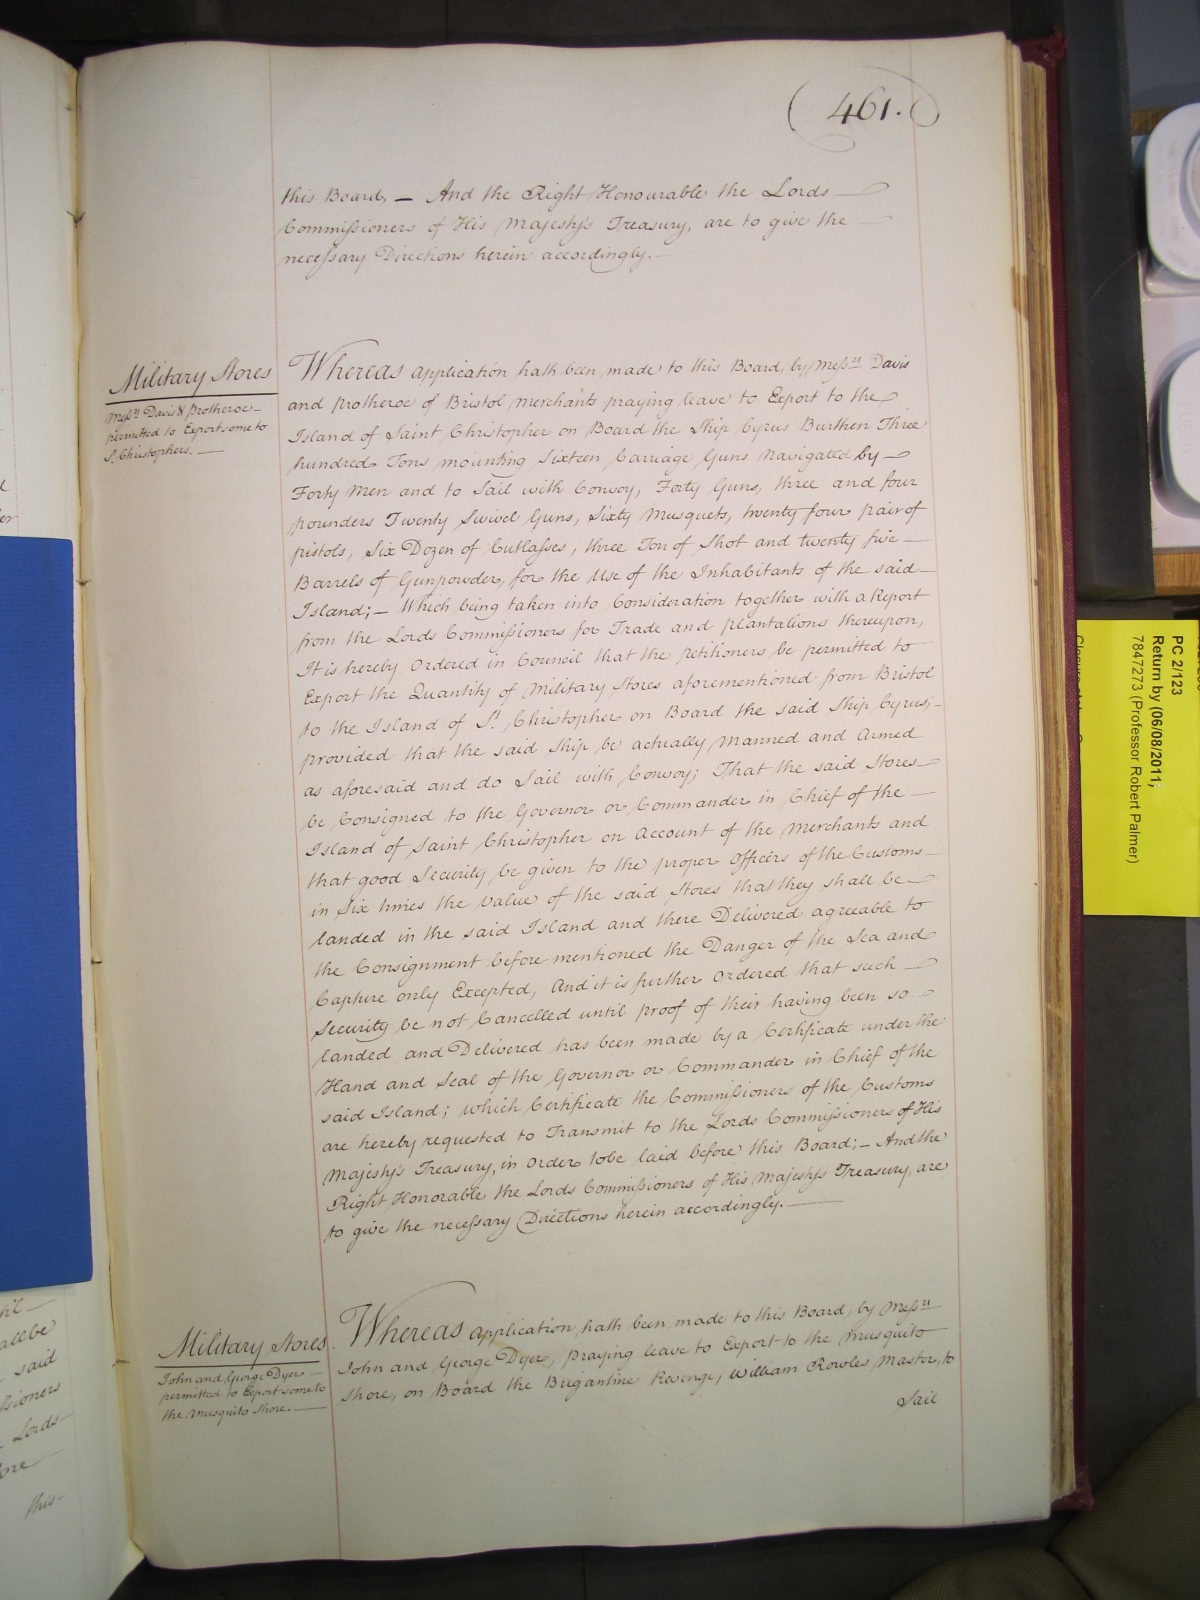 (461.)
this Board, — And the Right Honourable the Lords
Commissioners of His Majesty's Treasury, are to give the
necessary Directions herein accordingly. —
Military Stores
Messrs Davis & Protheroe
permitted to Export some to
St Christophers. —
Whereas application hath been made to this Board, by Messrs Davis
and Protheroe of Bristol Merchants praying leave to Export to the
Island of Saint Christopher on Board the Ship Cyrus Burthen Three
hundred Tons mounting Sixteen Carriage Guns navigated by
Forty Men and to Sail with Convoy, Forty Guns, three and four
pounders Twenty Swivel Guns, Sixty Musquets, twenty four pair of
pistols, Six Dozen of Cutlasses, three Ton of Shot and twenty five
Barrels of Gunpowder, for the Use of the Inhabitants of the said
Island; — Which being taken into Consideration together with a Report
from the Lords Commissioners for Trade and plantations thereupon,
It is hereby Ordered in Council that the petitioners be permitted to
Export the Quantity of Military Stores aforementioned from Bristol
to the Island of St Christopher on Board the said Ship Cyrus;
provided that the said Ship be actually Manned and Armed
as aforesaid and do Sail with Convoy; That the said Stores
be Consigned to the Governor or Commander in Chief of the
Island of Saint Christopher on Account of the Merchants and
that good Security be given to the proper Officers of the Customs
in Six times the value of the said Stores that they shall be
landed in the said Island and there Delivered agreeable to
the Consignment before mentioned the Danger of the Sea and
Capture only Excepted, And it is further Ordered that such
Security be not Cancelled until proof of their having been so
landed and Delivered has been made by a Certificate under the
Hand and Seal of the Governor or Commander in Chief of the
said Island; which Certificate the Commissioners of the Customs
are hereby requested to Transmit to the Lords Commissioners of His
Majesty's Treasury, in order to be laid before this Board; — And the
Right Honorable the Lords Commissioners of His Majesty's Treasury, are
to give the necessary Directions herein accordingly. —
Military Stores
John and George Dyer
permitted to Export some to
the Musquito Shore. —
Whereas application, hath been made to this Board, by Messrs
John and George Dyer, praying leave to Export to the Musquito
Shore, on Board the Brigantine Revenge, William Rowles Master, to
Sail
all be
said
Lords
this
PC 2/123
Return by (06/08/2011;
7847273 (Professor Robert Palmer)